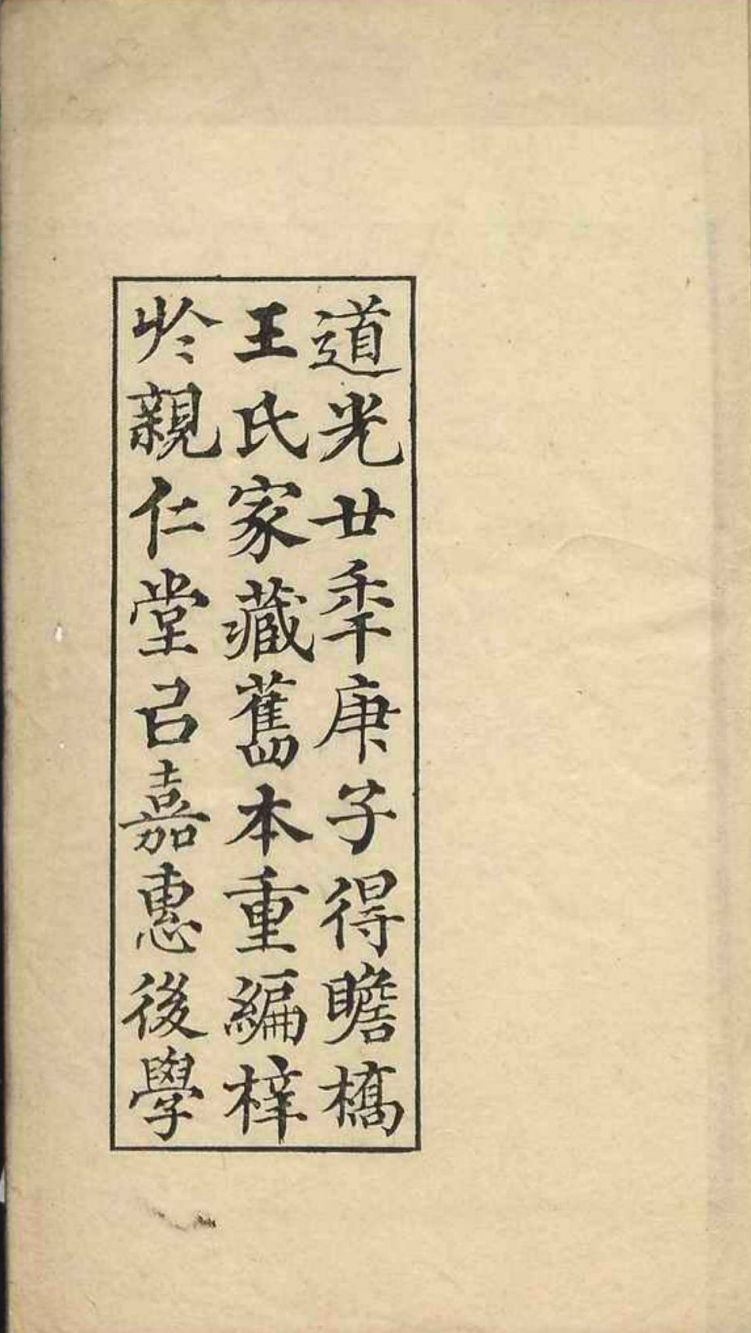 道光廿秊庚子得瞻橋
王氏家藏舊本重編梓
於親仁堂㠯嘉惠後學